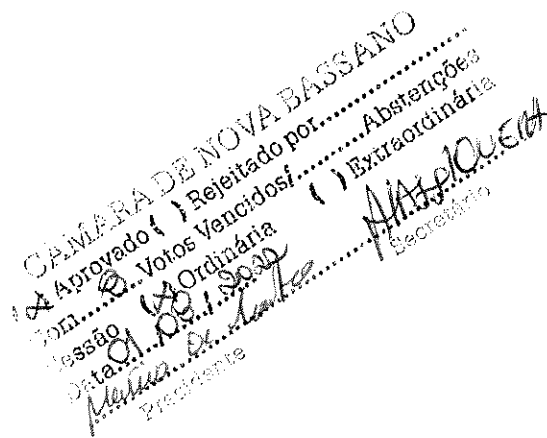 CAMARA DE NOVA BASSANO
(X) Aprovado ( ) Rejeitado por..............
Com........ Votos Vencidos/.......... Abstenções
Sessão (X) Ordinária ( ) Extraordinária
Data 01/09/2020
Presidente
Secretário